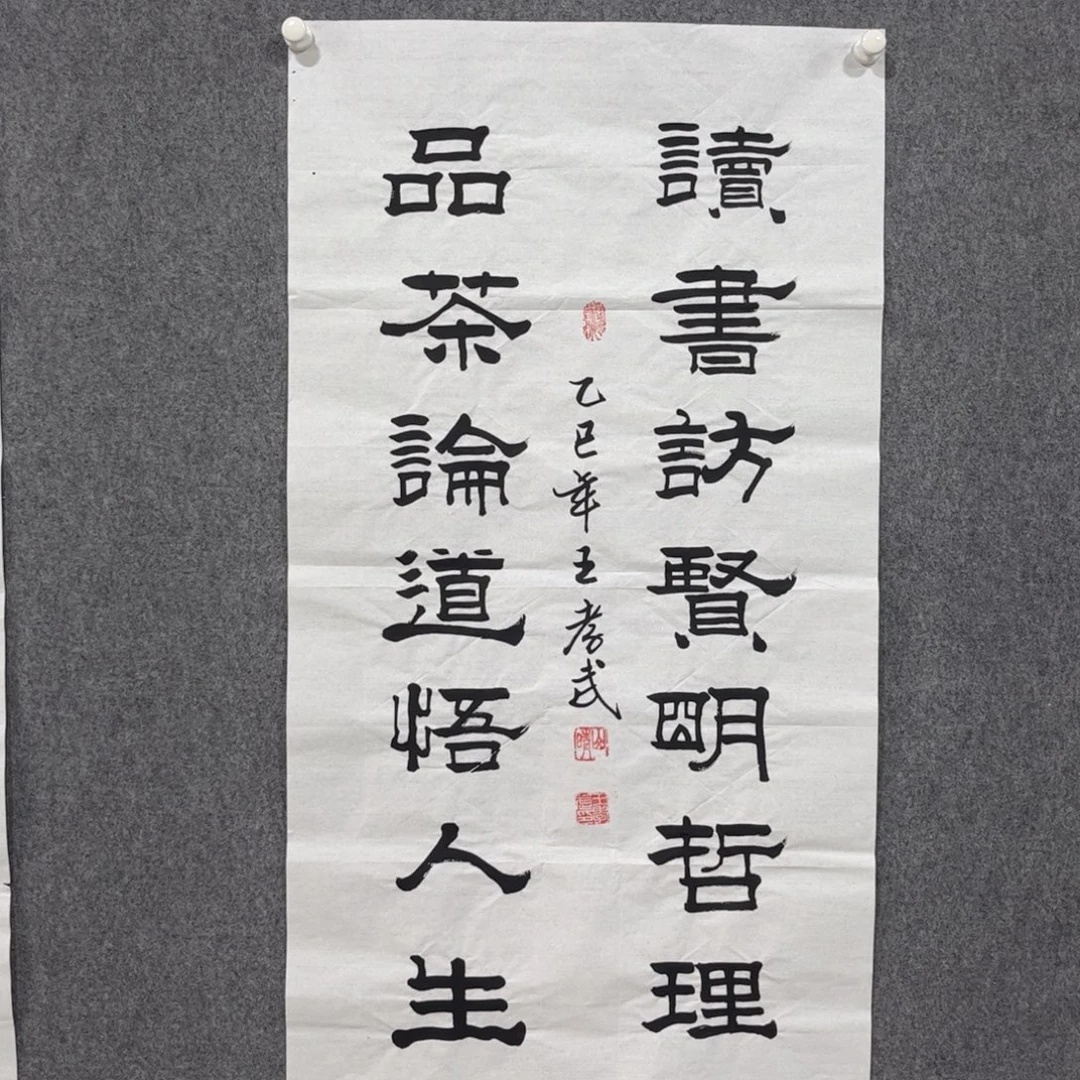 讀書訪賢明哲理
品茶論道悟人生
乙巳年王孝武